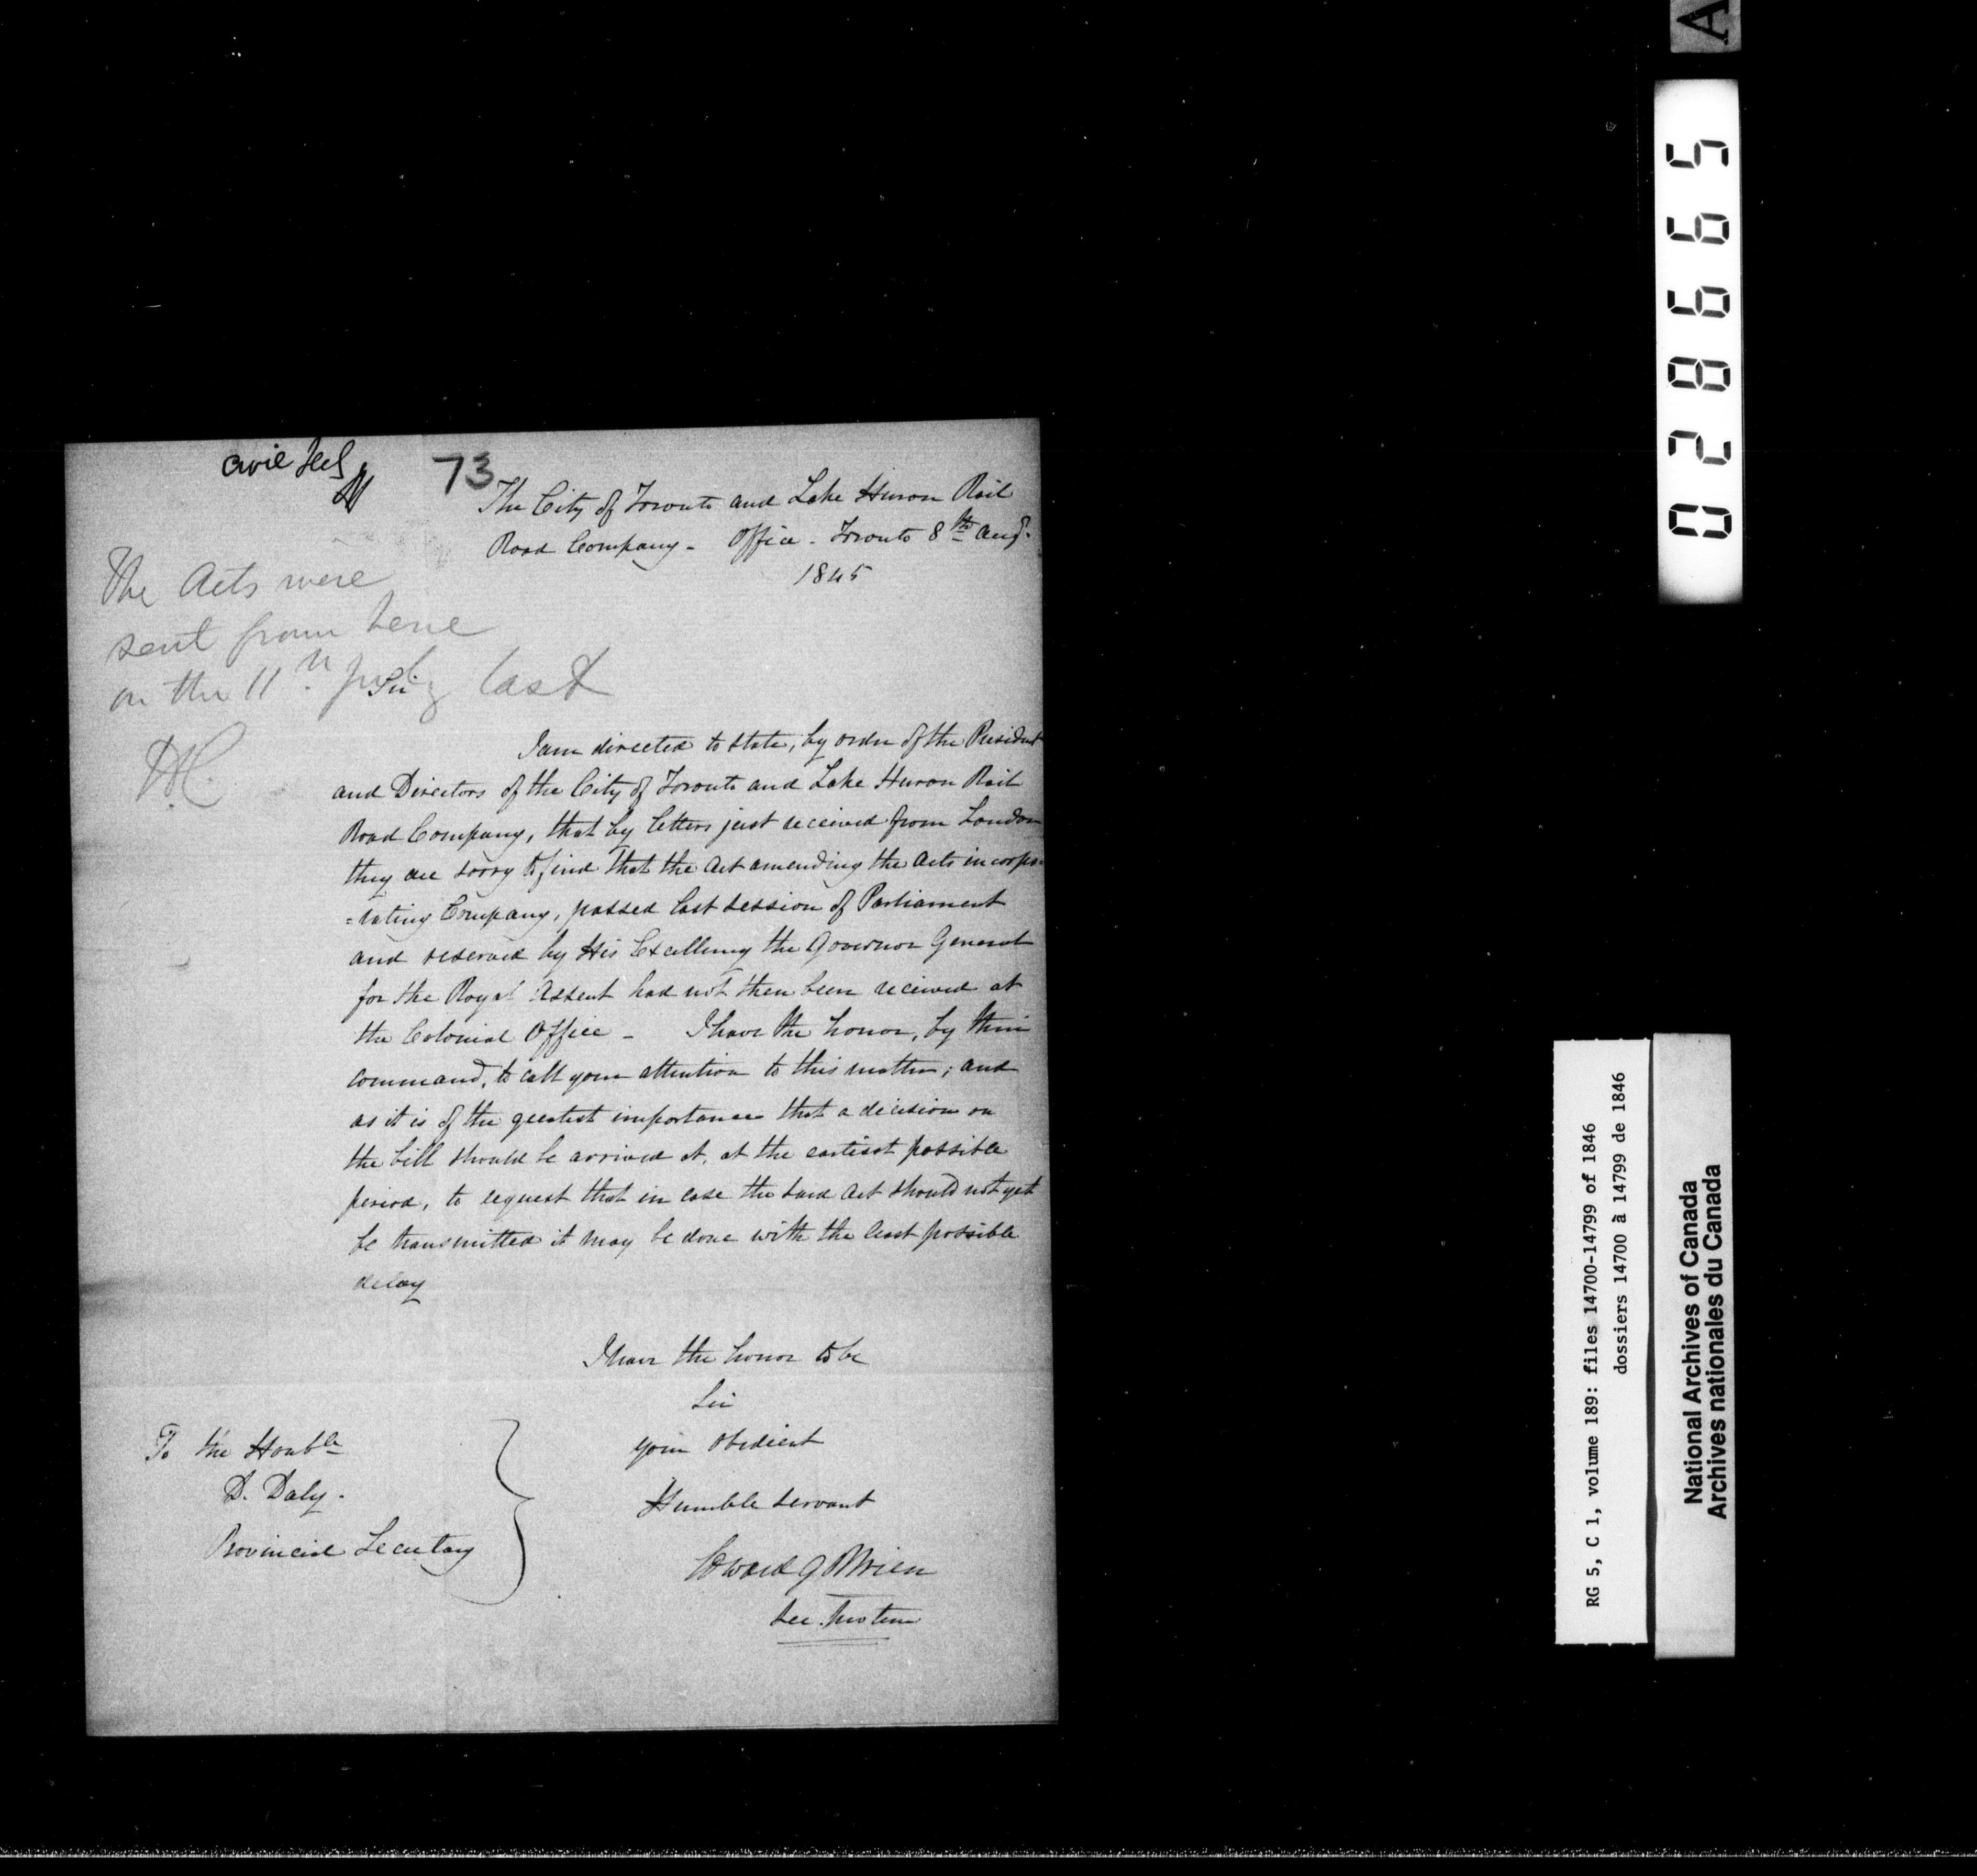 Civil Secy
73
The City of Toronto and Lake Huron Rail
Road Company - Office - Toronto 8th Augt
1845
The Acts were
sent from here
on the 11th July last
Sir
I am directed to state, by order of the President
and Directors of the City of Toronto and Lake Huron Rail
Road Company, that by letters just received from London
they are sorry to find that the Act amending the Acts incorpo=
=rating Company, passed last Session of Parliament
and reserved by His Excellency the Governor General
for the Royal Assent had not then been received at
the Colonial Office - I have the honor, by their
command, to call your attention to this matter; and
as it is of the greatest importance that a decision on
the bill should be arrived at, at the earliest possible
period, to request that in case the said Act should not yet
be transmitted it may be done with the least possible
delay
I have the honor to be
Sir
your Obedient
Humble Servant
Edward G OBrien
Sec. pro tem
To the Honble
D. Daly.
Provincial Secretary
A
028665
RG 5, C 1, volume 189: files 14700-14799 of 1846
dossiers 14700 à 14799 de 1846
National Archives of Canada
Archives nationales du Canada